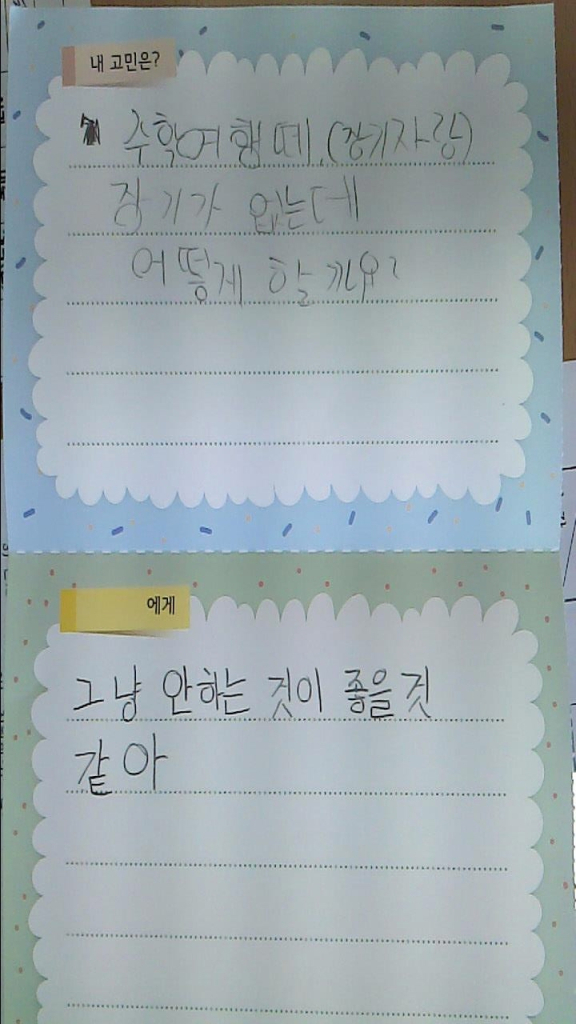 내 고민은?
수학여행 떼.(장기자랑)
장기가 없는데
어떻게 할까요?
에게
그냥 안하는 것이 좋을것
같아